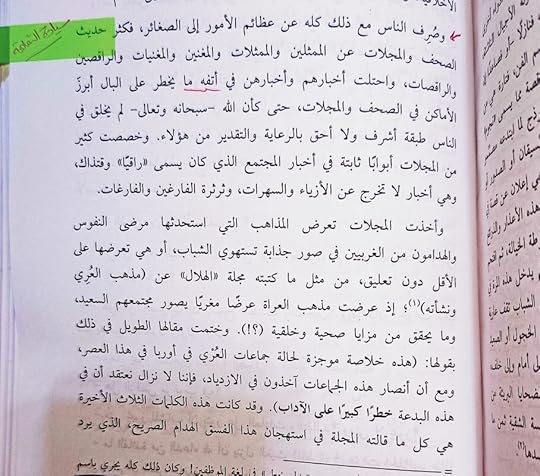 سيادة التفاهة
وصُرِف الناس مع ذلك كله عن عظائم الأمور إلى الصغائر، فكثر حديث
الصحف والمجلات عن الممثلين والممثلات والمغنين والمغنيات والراقصين
والراقصات، واحتلت أخبارهم وأخبارهن في أتفه ما يخطر على البال أبرزَ
الأماكن في الصحف والمجلات، حتى كأن الله -سبحانه وتعالى- لم يخلق في
الناس طبقة أشرف ولا أحق بالرعاية والتقدير من هؤلاء. وخصصت كثير
من المجلات أبوابًا ثابتة في أخبار المجتمع الذي كان يسمى «راقيًا» وقتذاك،
وهي أخبار لا تخرج عن الأزياء والسهرات، وثرثرة الفارغين والفارغات.
وأخذت المجلات تعرض المذاهب التي استحدثها مرضى النفوس
والهدامون من الغربيين في صور جذابة تستهوي الشباب، أو هي تعرضها على
الأقل دون تعليق، من مثل ما كتبته مجلة «الهلال» عن (مذهب العُري
ونشأته)(١)؛ إذ عرضت مذهب العراة عرضًا مغريًا يصور مجتمعهم السعيد،
وما يحقق من مزايا صحية وخلقية (؟!). وختمت مقالها الطويل في ذلك
بقولها: (هذه خلاصة موجزة لحالة جماعات العُرْي في أوربا في هذا العصر،
ومع أن أنصار هذه الجماعات آخذون في الازدياد، فإننا لا نزال نعتقد أن في
هذه البدعة خطرًا كبيرًا على الآداب). وقد كانت هذه الكلمات الثلاث الأخيرة
هي كل ما قالته المجلة في استهجان هذا الفسق الهدام الصريح، الذي يرد
في لغة الموظفين! وكان ذلك كله يجري باسم